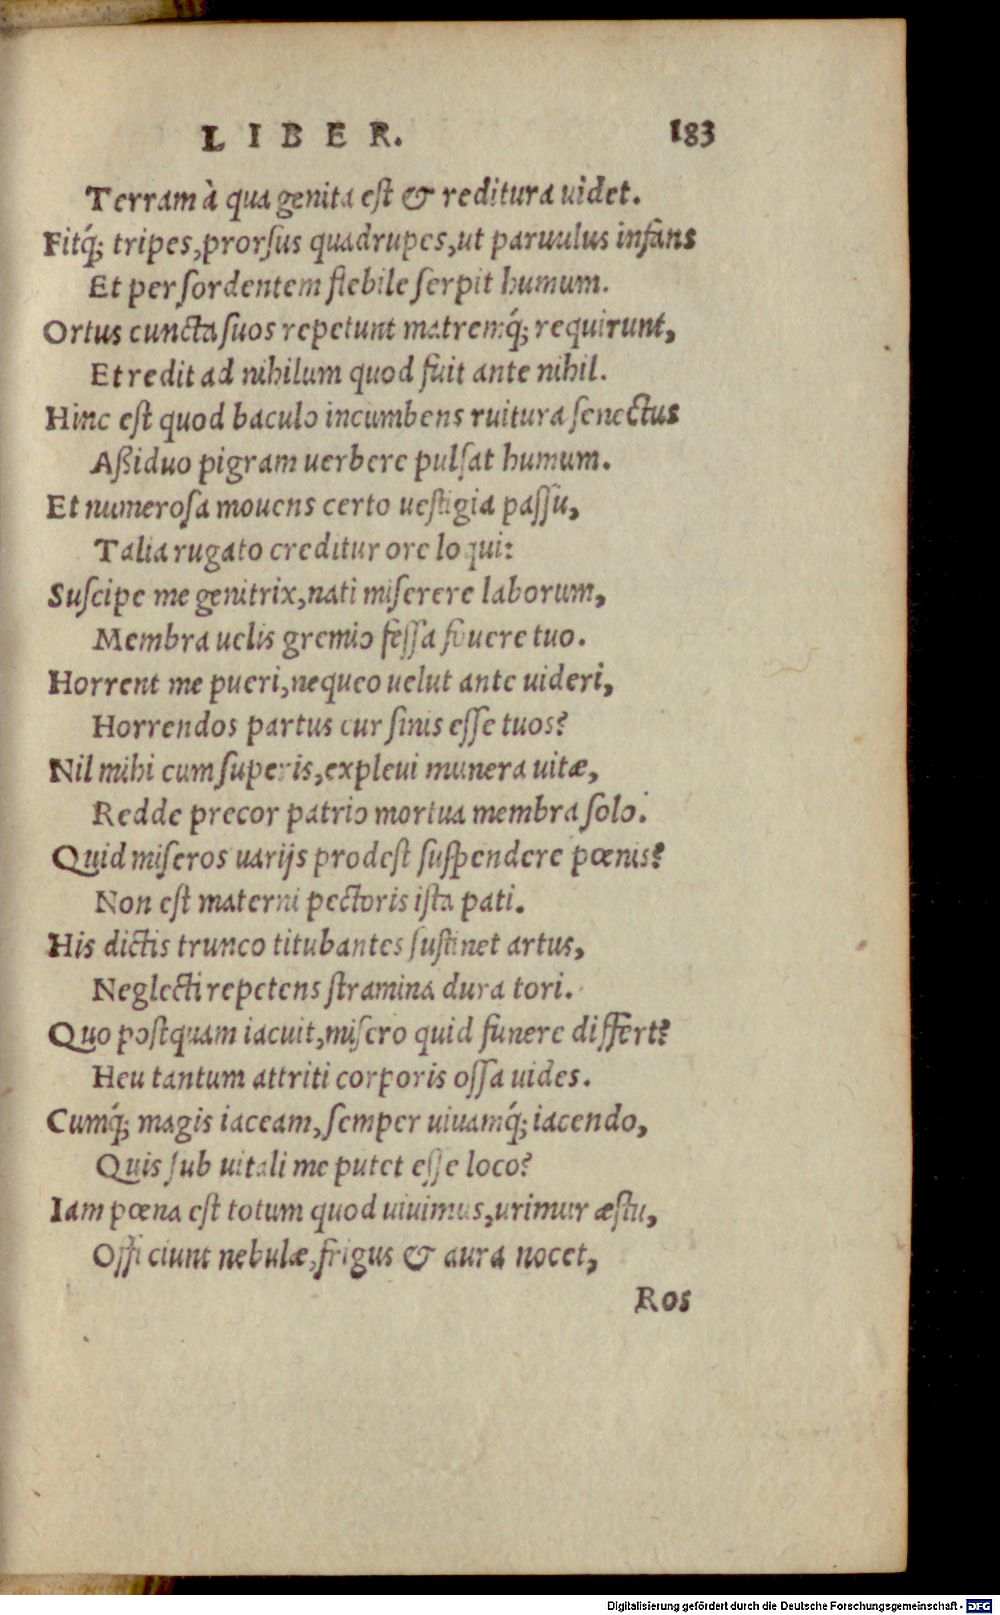 LIBER. 183
Terram à qua genita est & reditura uidet.
Fitq́; tripes, prorsus quadrupes, ut paruulus infans
Et per sordentem flebile serpit humum.
Ortus cuncta suos repetunt matremq́; requirunt,
Et redit ad nihilum quod fuit ante nihil.
Hinc est quod baculo incumbens ruitura senectus
Aßiduo pigram uerbere pulsat humum.
Et numerosa mouens certo uestigia passu,
Talia rugato creditur ore loqui:
Suscipe me genitrix, nati miserere laborum,
Membra uelis gremio fessa fouere tuo.
Horrent me pueri, nequeo uelut ante uideri,
Horrendos partus cur sinis esse tuos?
Nil mihi cum superis, expleui munera uitæ,
Redde precor patrio mortua membra solo.
Quid miseros uarijs prodest suspendere pœnis?
Non est materni pectoris ista pati.
His dictis trunco titubantes sustinet artus,
Neglecti repetens stramina dura tori.
Quo postquam iacuit, misero quid funere differt?
Heu tantum attriti corporis ossa uides.
Cumq́; magis iaceam, semper uiuamq́; iacendo,
Quis sub uitali me putet esse loco?
Iam pœna est totum quod uiuimus, urimur æstu,
Officiunt nebulæ, frigus & aura nocet,
Ros
Digitalisierung gefördert durch die Deutsche Forschungsgemeinschaft - DFG